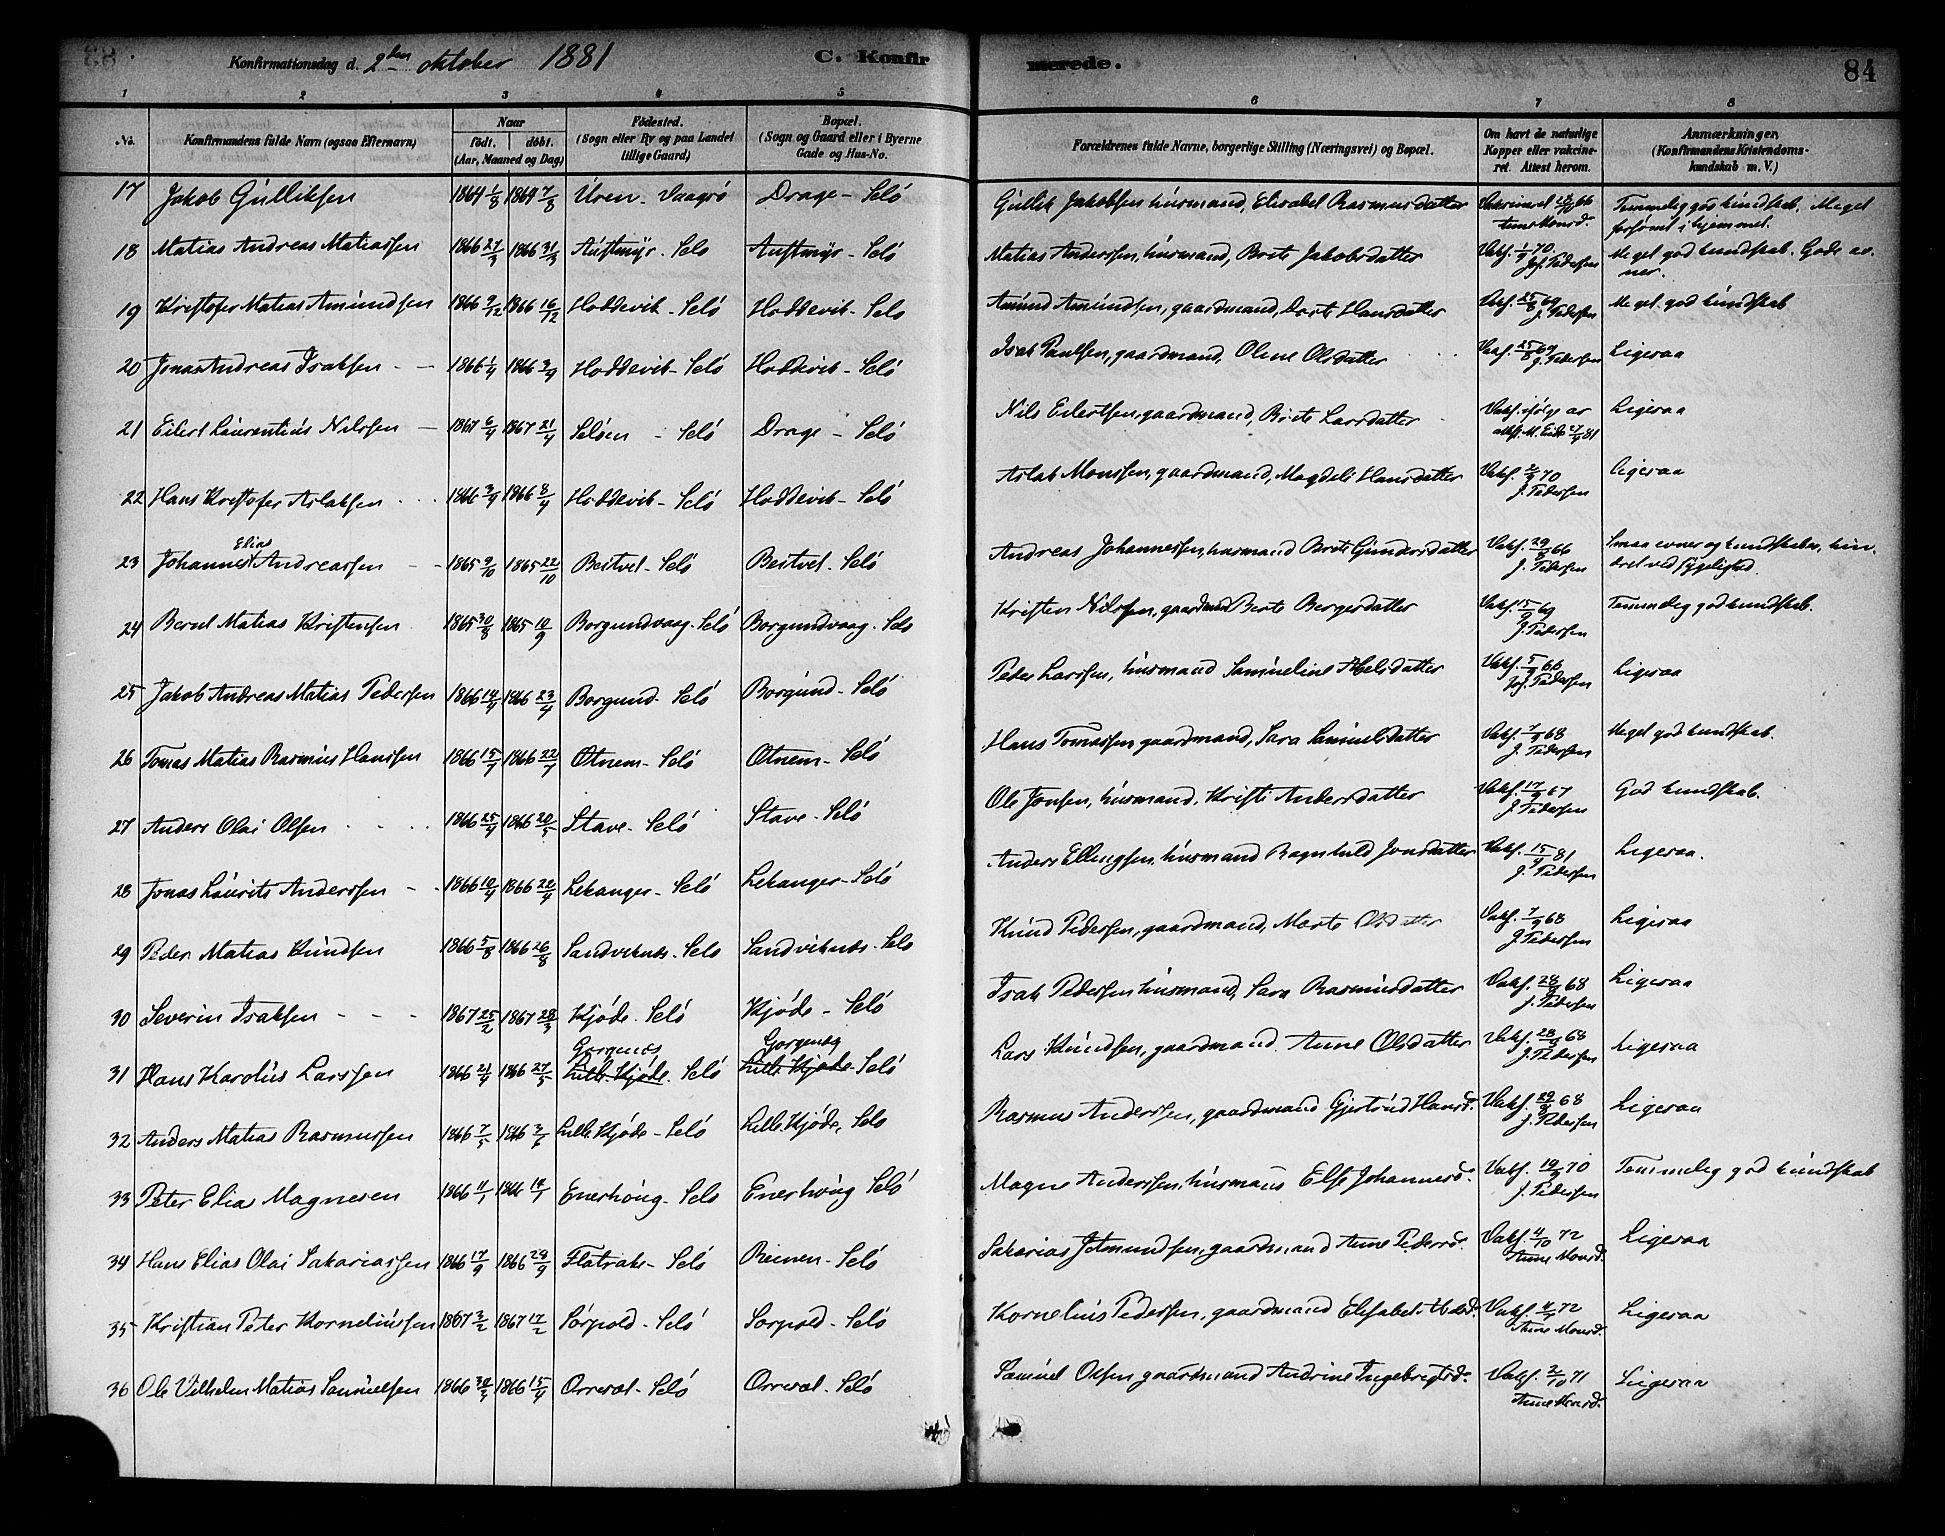 Konfirmationsdag d. 2den oktober 1881 C. Konfirmerede. 84
1 2 3 4 5 6 7 8
No. Konfirmandens fulde Navn (ogsaa Efternavn) Naar født. døbt. (Aar, Maaned og Dag) Fødested. (Sogn eller By og paa Landet tillige Gaard) Bopæl. (Sogn og Gaard eller i Byerne Gade og Hus-No. Forældrenes fulde Navne, borgerlige Stilling (Næringsvei) og Bopæl. Om havt de naturlige Kopper eller vakcineret. Attest herom. Anmærkninger. (Konfirmandens Kristendomskundskab m. V.)
17 Jakob Gulliksen 1864 1/8 1864 7/8 Uren - Vaagsö Drage - Selö Gullik Jakobsen husmand, Elisabet Rasmusdatter Vakcineret 66 Anne Monsd. Temmelig god kundskab. Meget forsömt i hjemmet.
18 Matias Andreas Matiassen 1866 27/3 1866 31/3 Austmyr - Selö Austmyr - Selö Matias Anderssen, husmand, Brite Jakobsdatter Vakс. 1/9 70 Jos. Pederssen Meget god kundskab. Gode evner.
19 Kristofer Matias Amundsen 1866 9/12 1866 16/12 Hoddevik - Selö Hoddevik - Selö Amund Amundsen, gaardmand, Dorte Hansdatter Vakс. 25/8 69 J. Pederssen Meget god kundskab
20 Jonas Andreas Isaksen 1866 1/4 1866 3/4 Hoddevik - Selö Hoddevik - Selö Isak Paulsen, gaardmand, Oline Olsdatter Vakс. 25/8 69 J. Pederssen Ligesaa
21 Eilert Laurentius Nilssen 1867 6/4 1867 21/4 Selöen - Selö Drage - Selö Nils Eilertsen, gaardmand, Brite Larsdatter Vakс. ifölge av attest M. Eide 27/9 81 Ligesaa
22 Hans Kristofer Aslaksen 1866 3/4 1866 8/4 Hoddevik - Selö Hoddevik - Selö Aslak Monssen, gaardmand, Magdeli Hansdatter Vakс. 2/9 70 J. Pederssen Ligesaa
23 Johannes Elias Andreassen 1865 9/10 1865 22/10 Beitvet - Selö Beitvet - Selö Andreas Johannessen, husmand Brite Gundersdatter Vakс. 29/8 66 J. Pederssen Smaa evner og kundskaber, hindret ved sygelighed.
24 Bernt Matias Kristensen 1865 30/8 1865 10/9 Borgundvaag - Selö Borgundvaag - Selö Kristen Nilssen, gaardmand Berte Bergersdatter Vakс. 15/9 69 J. Pederssen Temmelig god kundskab.
25 Jakob Andreas Matias Pedersen 1866 14/4 1866 23/4 Borgund - Selö Borgund - Selö Peder Larssen, husmand Samueline Abelsdatter Vakс. 5/9 66 Jos. Pederssen Ligesaa
26 Tomas Matias Rasmus Hanssen 1866 15/7 1866 22/7 Otnem - Selö Otnem - Selö Hans Tomassen gaardmand, Sara Samuelsdatter Vakс. 7/9 68 J. Pederssen Meget god kundskab.
27 Anders Olai Olsen 1866 25/4 1866 20/5 Stave - Selö Stave - Selö Ole Jonsen, husmand, Kristi Andersdatter Vakс. 17/9 67 J. Pederssen God kundskab.
28 Jonas Laurits Anderssen 1866 10/4 1866 20/4 Lekanger - Selö Lekanger - Selö Anders Ellingsen, husmand Ragnhild Jonsdatter Vakс. 15/9 81 J. Pederssen Ligesaa.
29 Peder Matias Knudsen 1866 5/8 1866 26/8 Sandviknæs - Selö Sandviknæs - Selö Knud Pederssen, gaardmand, Marte Olsdatter Vakс. 7/9 68 J. Pederssen Ligesaa
30 Severin Isaksen 1867 25/2 1867 28/3 Kjöde - Selö Kjöde - Selö Isak Pederssen husmand, Sara Rasmusdatter Vakс. 28/8 68 J. Pederssen Ligesaa
31 Hans Karolius Larssen 1866 21/4 1866 27/5 Gorgenæs Lille Kjöde - Selö Gorgenæs Lille Kjöde - Selö Lars Knudsen, gaardmand Anne Olsdatter Vakс. 28/8 68 J. Pederssen Ligesaa
32 Anders Matias Rasmussen 1866 7/5 1866 3/6 Lille Kjöde - Selö Lille Kjöde, Selö Rasmus Anderssen, gaardmand Gjertrud Hansd. Vakс. 29/8 68 J. Pederssen Ligesaa
33 Peter Elias Magnesen 1866 11/1 1866 14/1 Enerhöug - Selö Enerhöug Selö Magne Anderssen, husmans Else Johannesd. Vakс. 19/9 70 J. Pederssen Temmelig god kundskab
34 Hans Elias Olai Sakariassen 1866 17/9 1866 29/9 Flatrake - Selö Reinen - Selö Sakarias gaardmand Anne Pedersd. Vakс. 4/10 72 Anne Monsd. Ligesaa
35 Kristian Peter Korneliussen 1867 3/2 1867 17/2 Sörpold - Selö Sörpold - Selö Kornelius Pederssen, gaardmand Elisabet Vakс. 72 Anne Monsd. Ligesaa
36 Ole Vilhelm Matias Samuelsen 1866 30/3 1866 15/4 Orrevet - Selö Orrevet - Selö Samuel Olsen gaardmand Andrine Ingebrigtsd. Vakс. 2/10 71 Anne Monsd. Ligesaa